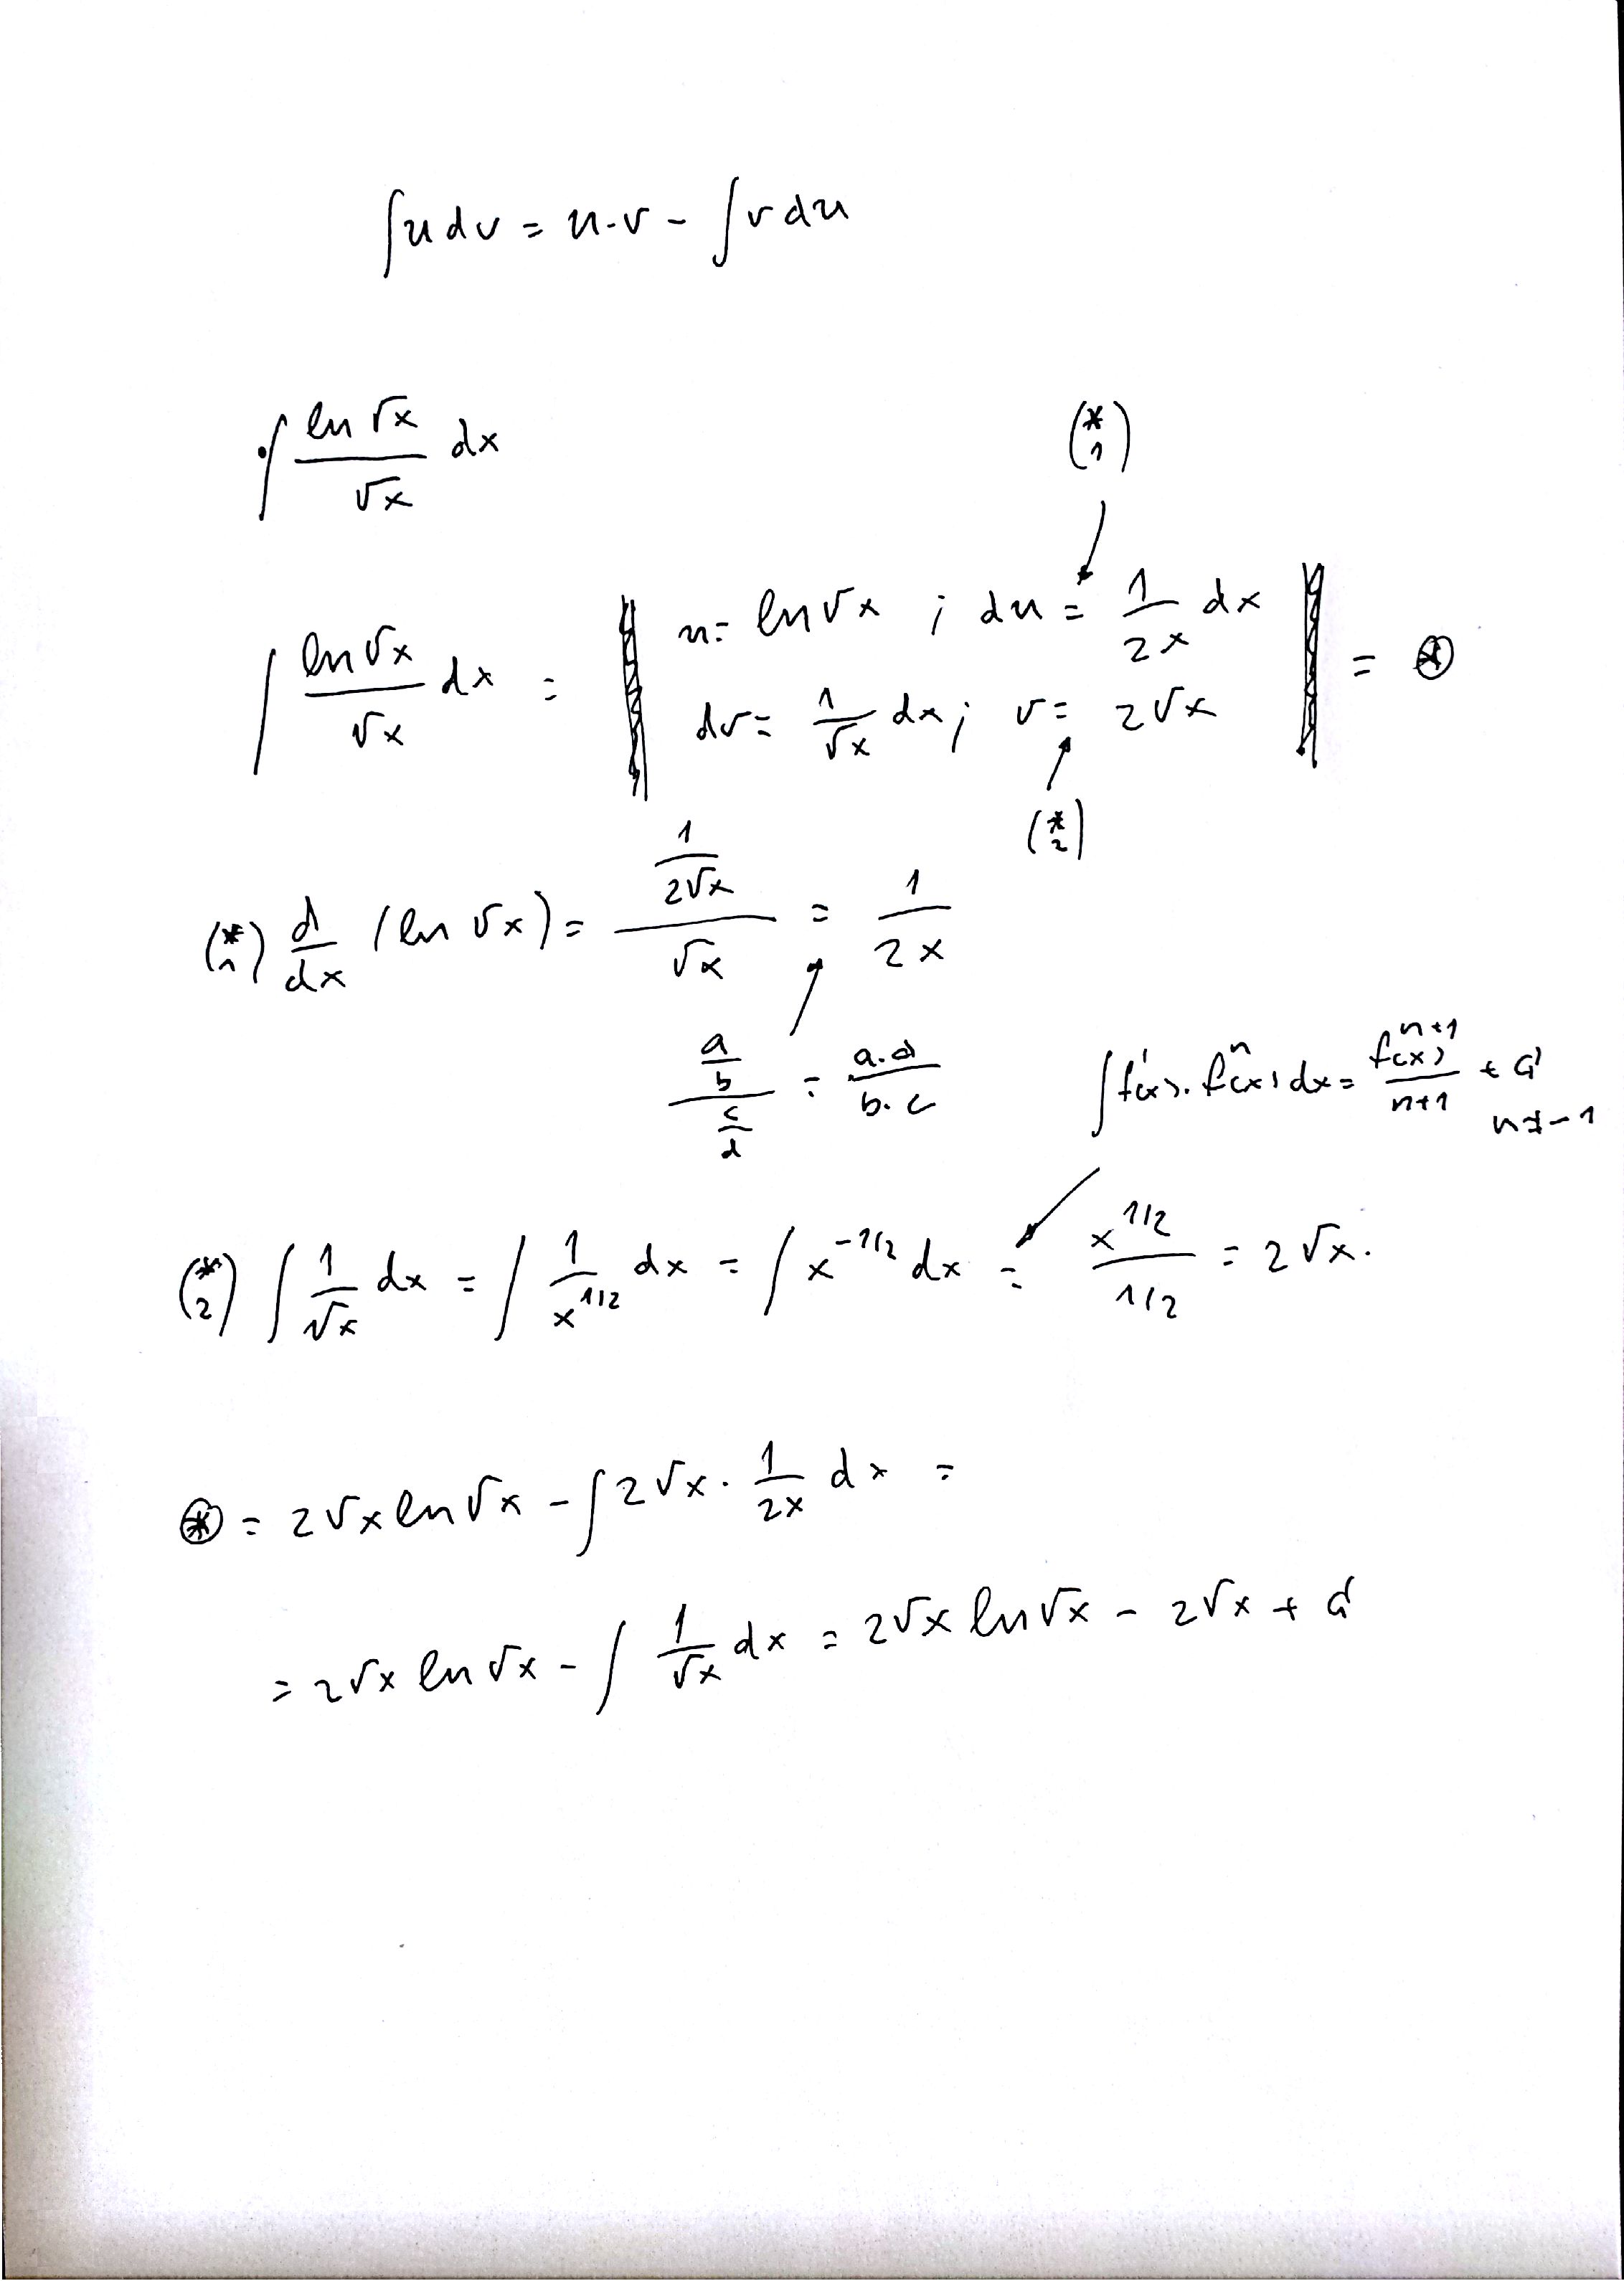 ∫u dv = u·v - ∫v du
∫ ln √x / √x dx
(*1)
∫ ln √x / √x dx = || u = ln √x ; du = 1/2x dx || = ⊛
dv = 1/√x dx ; v = 2√x
(*2)
(*1) d/dx (ln √x) = (1/2√x)/√x = 1/2x
(a/b)/(c/d) = a·d/b·c
∫f'(x)·fⁿ(x) dx = f(x)ⁿ⁺¹/n+1 + C
n ≠ -1
(*2) ∫ 1/√x dx = ∫ 1/x^1/2 dx = ∫ x^-1/2 dx = x^1/2 / 1/2 = 2√x.
⊛ = 2√x ln √x - ∫2√x · 1/2x dx =
= 2√x ln √x - ∫ 1/√x dx = 2√x ln √x - 2√x + C